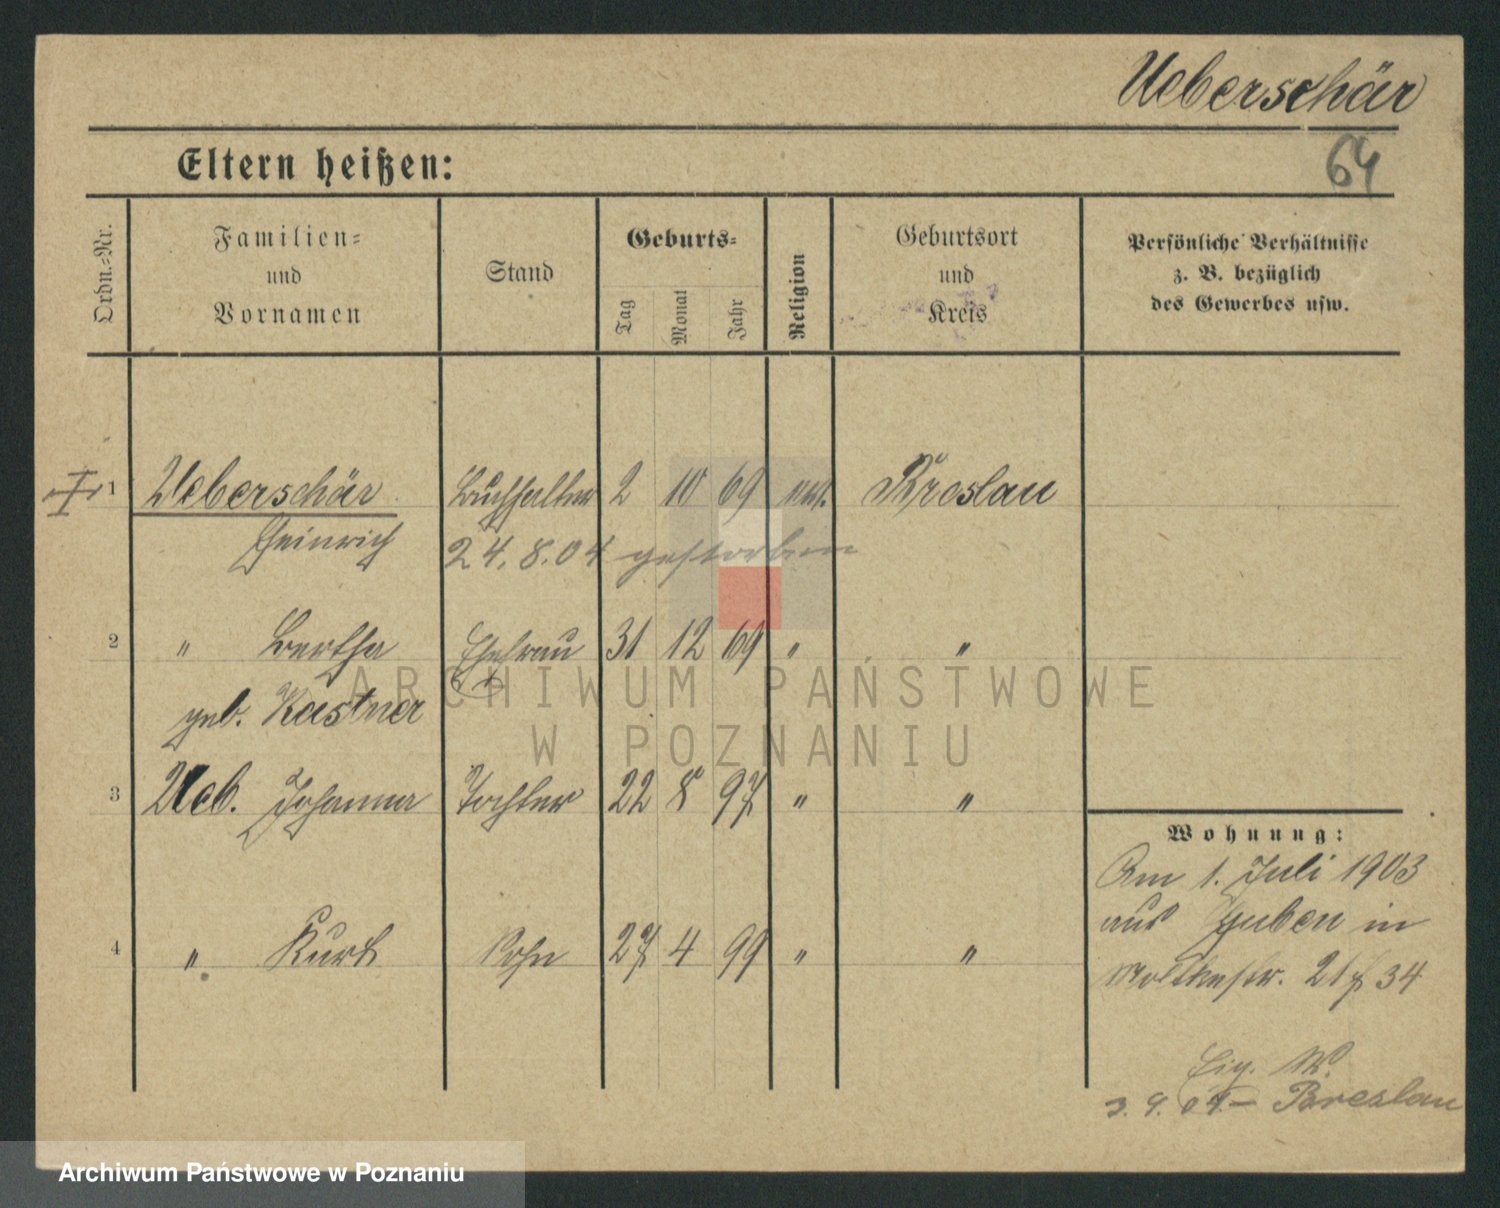 Ueberschär
64
Eltern heißen:
Ordn.-Nr.
Familien- und Vornamen
Stand
Geburts-
Tag
Monat
Jahr
Religion
Geburtsort und Kreis
Persönliche Verhältnisse z. B. bezüglich des Gewerbes usw.
1 Ueberschär Buchhalter 2 10 69 Breslau
Heinrich 24. 8. 04 gestorben
2 " Bertha Ehefrau 31 12 69 " "
geb. Kastner
3 Ueb. Johanna Tochter 22 8 97 " "
4 " Kurt Sohn 27 4 99 " "
Wohnung:
Am 1. Juli 1903
aus Guben in
Moltkestr. 21 34
Eig. W.
3. 9. 04 – Breslau
ARCHIWUM PAŃSTWOWE
W POZNANIU
Archiwum Państwowe w Poznaniu